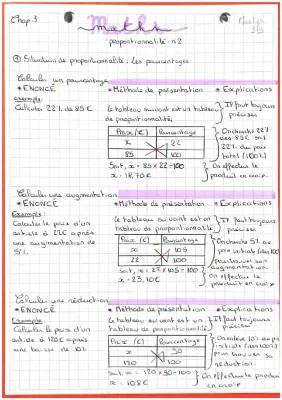 Chap 3
maths
proportionnalité n°2
① Situation de proportionnalité : Les pourcentages
Calculer un pourcentage
• ENONCÉ • Méthode de présentation • Explications
exemple:
Calculer 22% de 85 €
Le tableau suivant est un tableau de proportionnalité.
Il faut toujours préciser
Prix (€) Pourcentage
x 22
85 100
On cherche 22% des 85€ soit 22% du prix total (100%)
Soit, x = 85 x 22 ÷ 100
x = 18,70 €
On effectue le produit en croix.
Calculer une augmentation
• ENONCÉ • Méthode de présentation • Explications
Exemple:
Calculer le prix d'un article à 22€ après une augmentation de 5%.
Le tableau suivant est un tableau de proportionnalité
Il faut toujours préciser
Prix (€) Pourcentage
x 105
22 100
On cherche 5% au prix initial (les 100%) pour trouver son augmentation.
Soit, x = 22 x 105 ÷ 100
x = 23,10€
On effectue le produit en croix
Calculer une réduction
• ENONCÉ • Méthode de présentation • Explications
Exemple:
Calculer le prix d'un article à 120€ après une baisse de 10%
Le tableau suivant est un tableau de proportionnalité
Il faut toujours préciser
Prix (€) Pourcentage
x 90
120 100
On enlève 10% au prix initial (les 100%) pour trouver sa réduction.
Soit, x = 120 x 90 ÷ 100
x = 108€
On effectue le produit en croix